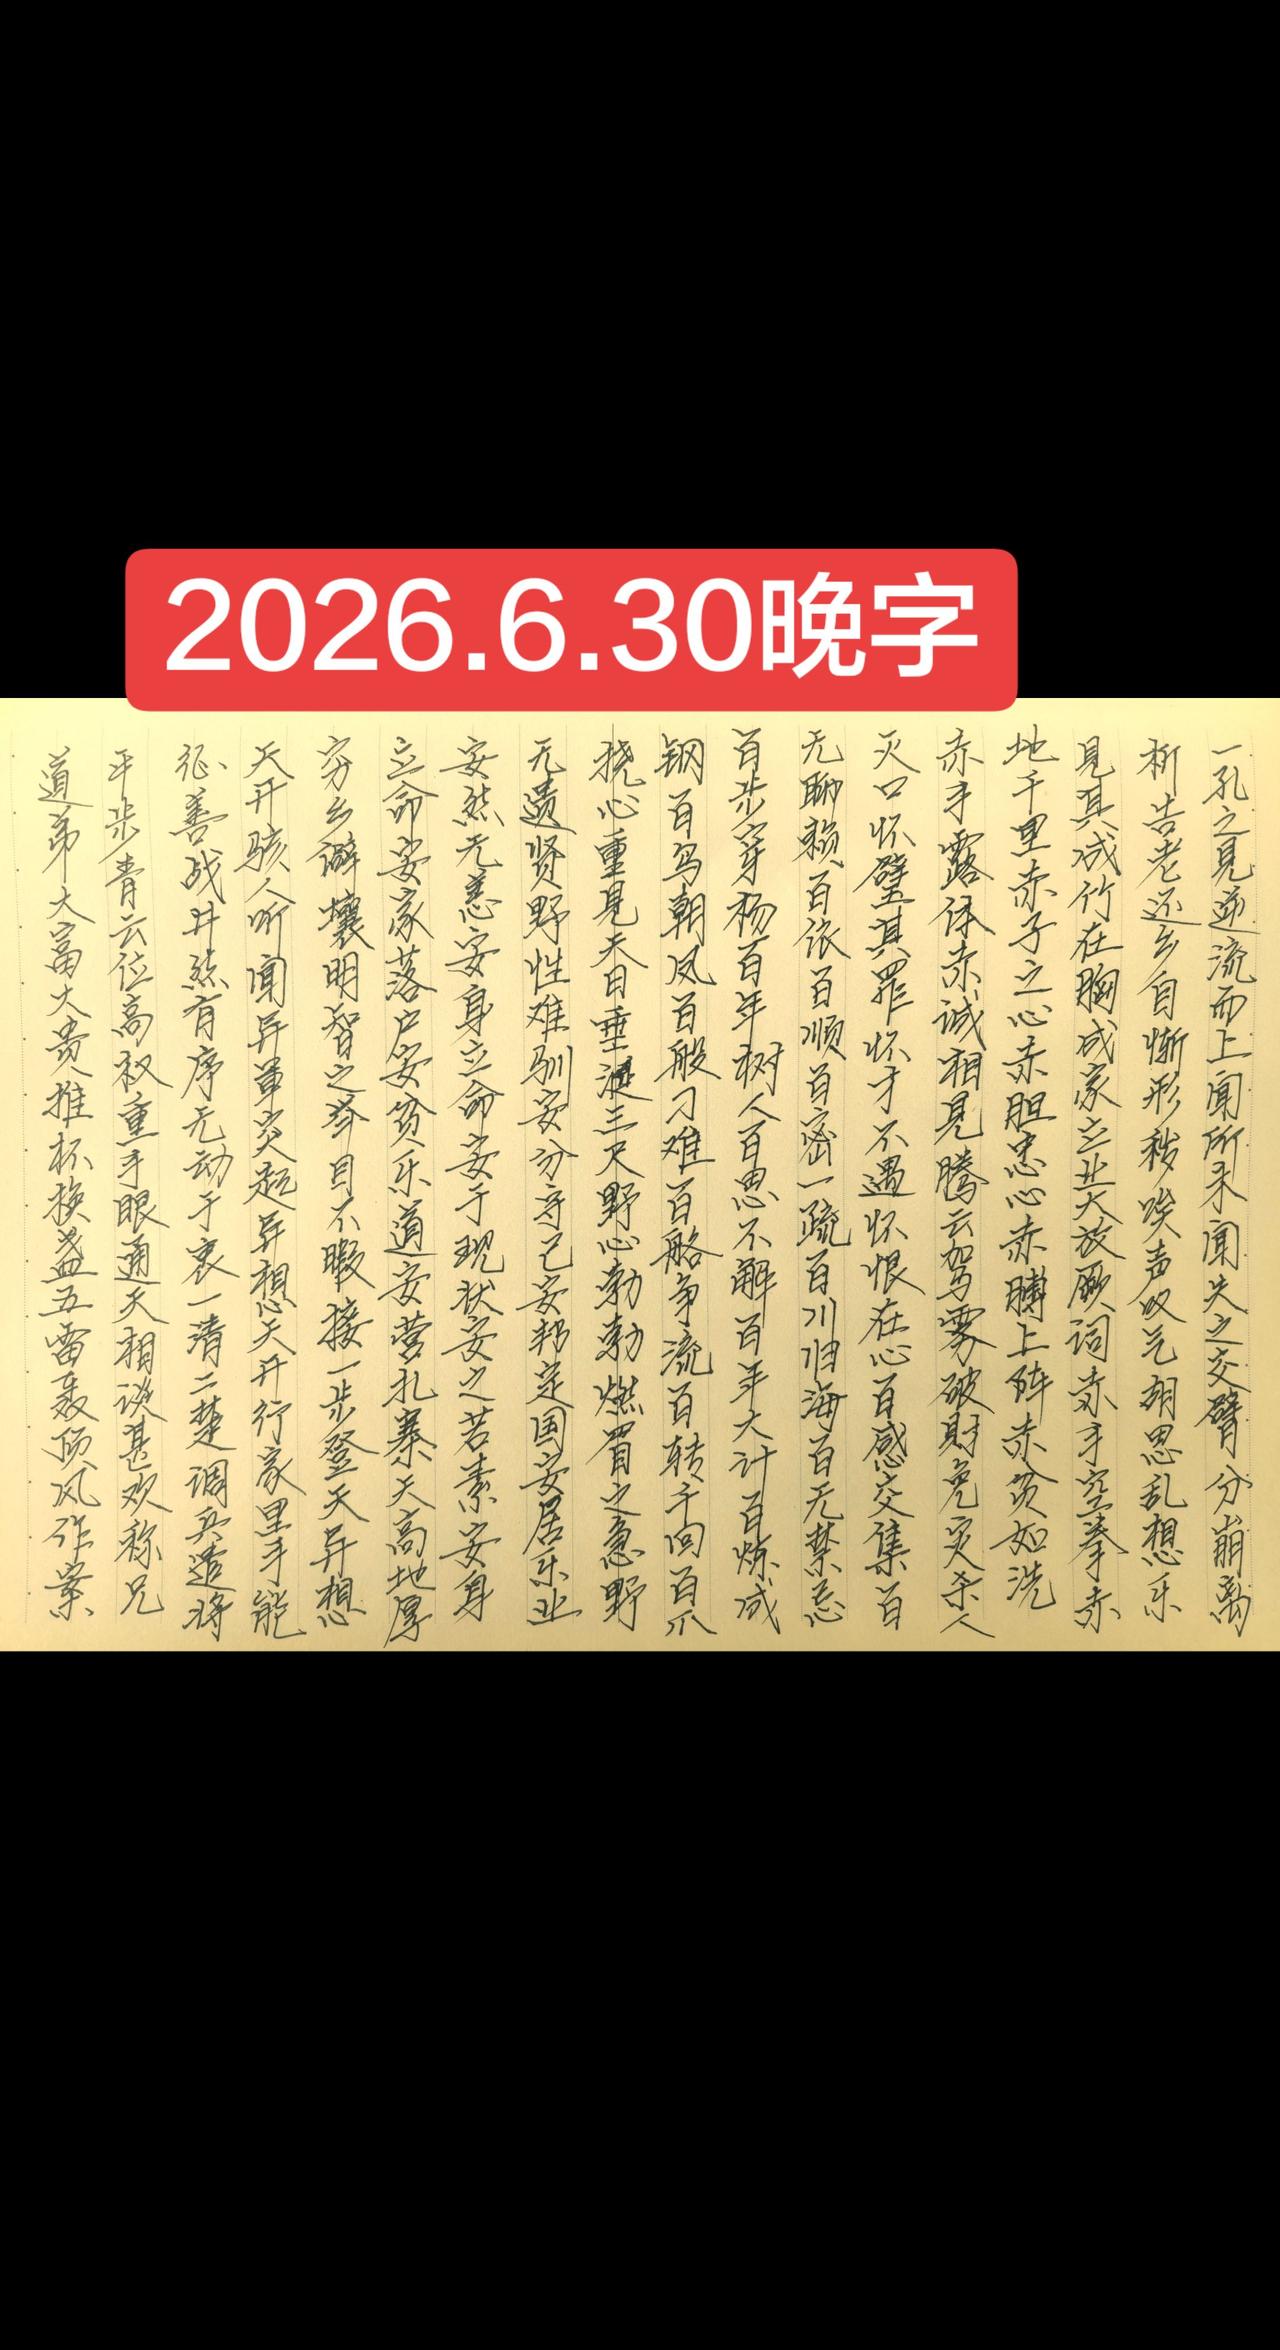 2026.6.30晚字
一孔之見逆流而上闻所未闻失之交臂分崩离
析告老还乡自惭形秽唉声叹气胡思乱想乐
見其成竹在胸成家立业大放厥词赤手空拳赤
地千里赤子之心赤胆忠心赤膊上阵赤贫如洗
赤手露体赤诚相見腾云驾雾破财免灾杀人
灭口怀璧其罪怀才不遇怀恨在心百感交集百
无聊赖百依百顺百密一疏百川归海百无禁忌
百步穿杨百年树人百思不解百年大计百炼成
钢百鸟朝凤百般刁难百舸争流百转千回百爪
挠心重見天日垂涎三尺野心勃勃燃眉之急野
无遗贤野性难驯安分守己安邦定国安居乐业
安然无恙安身立命安于现状安之若素安身
立命安家落户安贫乐道安营扎寨天高地厚
穷乡僻壤明智之举目不暇接一步登天异想
天开骇人听闻异军突起异想天开行家里手能
征善战井然有序无动于衷一清二楚调兵遣将
平步青云位高权重手眼通天相谈甚欢称兄
道弟大富大贵推杯换盏五雷轰顶风作案